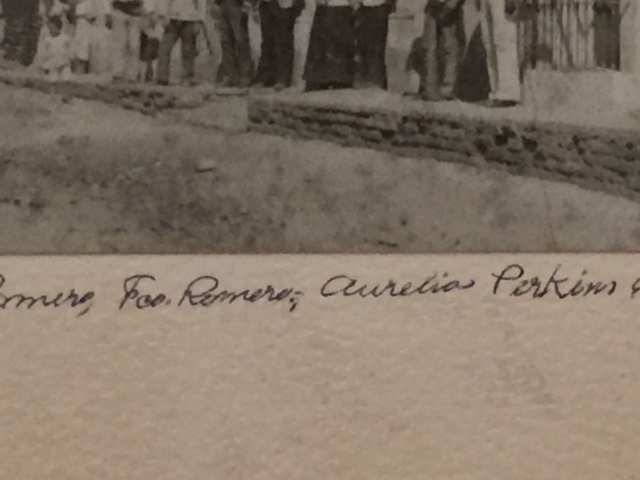 Romero, Fco. Romero; Aurelia Perkins